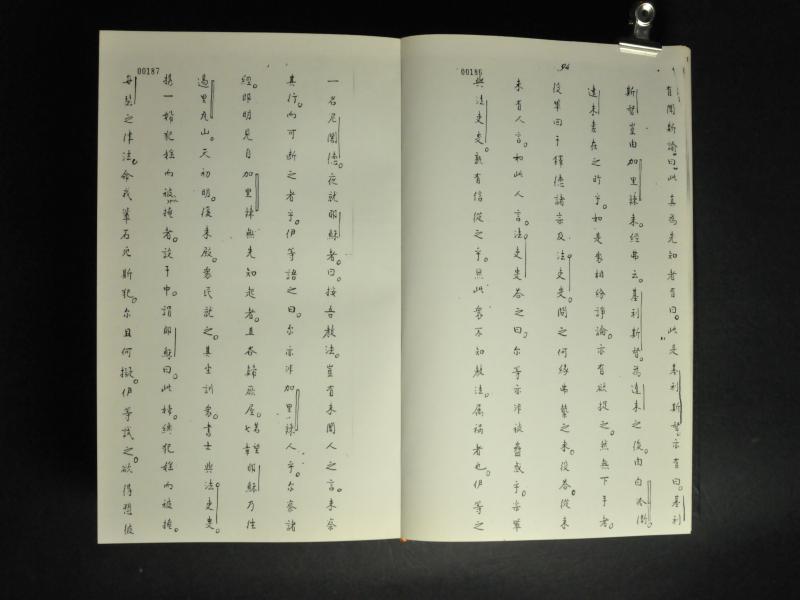 00186
94
有聞斯諭曰。此真為先知者有曰。此是基利斯督。亦有曰。基利
斯督豈由加里辣來。經弗云。基利斯督。為達未之後。由白冷
達未素在之所乎。如是眾相紛諍論。亦有欲捉之。然無下手者。
役輩回于鐸德諸宗及法吏叟。問之何緣弗繫之來。役答。從來
未有人言。如此人言。法吏叟答之曰。尔等亦沖被蠱或乎。宗輩
與法吏叟。孰有信從之乎。然此眾不知教法。属禍者也。伊等之
00187
一名尼閣德。夜就耶穌者。曰。按吾教法。豈有未聞人之言。未察
其行。而可断之者乎。伊等語之曰。尔亦沖加里辣人乎。尔察諸
經。即明見自加里辣無先知起者。且各歸厥屋。耶穌乃往
過里瓦山。天初明。復来殿。眾民就之。其坐訓眾。書士與法吏叟。
携一婦犯婬而被掩者。設于中。謂耶穌曰。此婦纔犯婬而被掩。
每瑟之律法。命我輩石死斯犯。尔且何擬。伊等試之。欲得憑彼